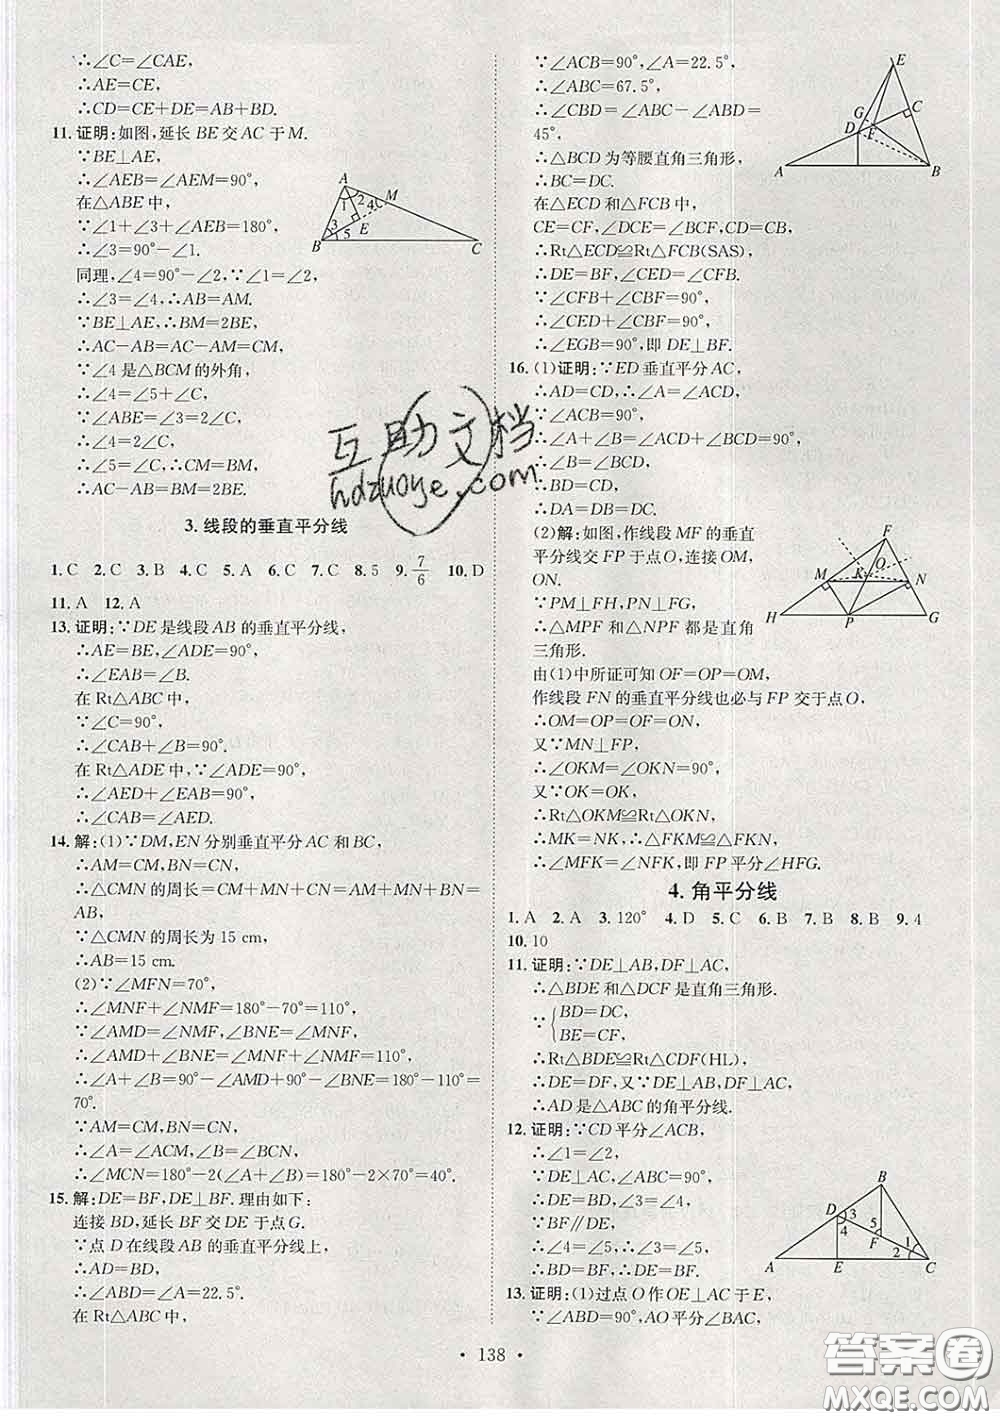 ∴∠C=∠CAE,
∴AE=CE,
∴CD=CE+DE=AB+BD.
11.证明:如图,延长 BE 交 AC 于 M.
∵BE⊥AE,
∴∠AEB=∠AEM=90°,
在△ABE 中,
∵∠1+∠3+∠AEB=180°,
∴∠3=90°-∠1.
同理,∠4=90°-∠2,∵∠1=∠2,
∴∠3=∠4,∴AB=AM.
∵BE⊥AE,∴BM=2BE,
∴AC-AB=AC-AM=CM,
∵∠4 是△BCM 的外角,
∴∠4=∠5+∠C.
∵∠ABE=∠3=2∠C,
∴∠4=2∠C,
∴∠5=∠C,∴CM=BM.
∴AC-AB=BM=2BE.
A
M
1
2
4
3
5
E
B
C
3.线段的垂直平分线
1.C 2.C 3.B 4.C 5.A 6.C 7.C 8.5 9.7/6 10.D
11.A 12.A
13.证明:∵DE 是线段 AB 的垂直平分线,
∴AE=BE,∠ADE=90°,
∴∠EAB=∠B.
在 Rt△ABC 中,
∵∠C=90°,
∴∠CAB+∠B=90°.
在 Rt△ADE 中,∵∠ADE=90°,
∴∠AED+∠EAB=90°,
∴∠CAB=∠AED.
14.解:(1)∵DM,EN 分别垂直平分 AC 和 BC,
∴AM=CM,BN=CN,
∴△CMN 的周长=CM+MN+CN=AM+MN+BN=
AB,
∵△CMN 的周长为 15 cm,
∴AB=15 cm.
(2)∵∠MFN=70°,
∴∠MNF+∠NMF=180°-70°=110°,
∵∠AMD=∠NMF,∠BNE=∠MNF,
∴∠AMD+∠BNE=∠MNF+∠NMF=110°,
∴∠A+∠B=90°-∠AMD+90°-∠BNE=180°-110°=
70°.
∵AM=CM,BN=CN,
∴∠A=∠ACM,∠B=∠BCN,
∴∠MCN=180°-2(∠A+∠B)=180°-2×70°=40°.
15.解:DE=BF,DE⊥BF.理由如下:
连接 BD,延长 BF 交 DE 于点 G.
∵点 D 在线段 AB 的垂直平分线上,
∴AD=BD,
∴∠ABD=∠A=22.5°.
在 Rt△ABC 中,
∵∠ACB=90°,∠A=22.5°,
∴∠ABC=67.5°,
∴∠CBD=∠ABC-∠ABD=
45°,
∴△BCD 为等腰直角三角形,
∴BC=DC.
在△ECD 和△FCB 中,
CE=CF,∠DCE=∠BCF,CD=CB,
∴Rt△ECD≌Rt△FCB(SAS),
∴DE=BF,∠CED=∠CFB.
∵∠CFB+∠CBF=90°,
∴∠CED+∠CBF=90°,
∴∠EGB=90°,即 DE⊥BF.
E
G
C
D
F
A
B
16.(1)证明:∵ED 垂直平分 AC,
∴AD=CD,∴∠A=∠ACD,
∵∠ACB=90°,
∴∠A+∠B=∠ACD+∠BCD=90°,
∴∠B=∠BCD,
∴BD=CD,
∴DA=DB.
(2)解:如图,作线段 MF 的垂直
平分线交 FP 于点 O,连接 OM,
ON.
∵PM⊥FH,PN⊥FG,
∴△MPF 和△NPF 都是直角
三角形.
由(1)中所证可知 OF=OP=OM,
作线段 FN 的垂直平分线也必与 FP 交于点 O,
∴OM=OP=OF=ON,
又∵MN⊥FP,
∴∠OKM=∠OKN=90°,
又∵OK=OK,
∴Rt△OKM≌Rt△OKN,
∴MK=NK,∴△FKM≌△FKN,
∴∠MFK=∠NFK,即 FP 平分∠HFG.
F
M
K
O
N
H
P
G
4.角平分线
1.A 2.A 3.120° 4.D 5.C 6.B 7.B 8.B 9.4
10.10
11.证明:∵DE⊥AB,DF⊥AC,
∴△BDE 和△DCF 是直角三角形.
∵{BD=DC,
BE=CF,
∴Rt△BDE≌Rt△CDF(HL),
∴DE=DF,又∵DE⊥AB,DF⊥AC,
∴AD 是△ABC 的角平分线.
12.证明:∵CD 平分∠ACB,
∴∠1=∠2,
∵DE⊥AC,∠ABC=90°,
∴DE=BD,∠3=∠4,
∵BF∥DE,
∴∠4=∠5,∴∠3=∠5,
∴BD=BF,∴DE=BF.
B
D
3
4
5
F
1
2
A
E
C
13.证明:(1)过点 O 作 OE⊥AC 于 E,
∵∠ABD=90°,AO 平分∠BAC,
• 138 •
互助文档
hdzuoye.com
答案圈
MXQE.COM